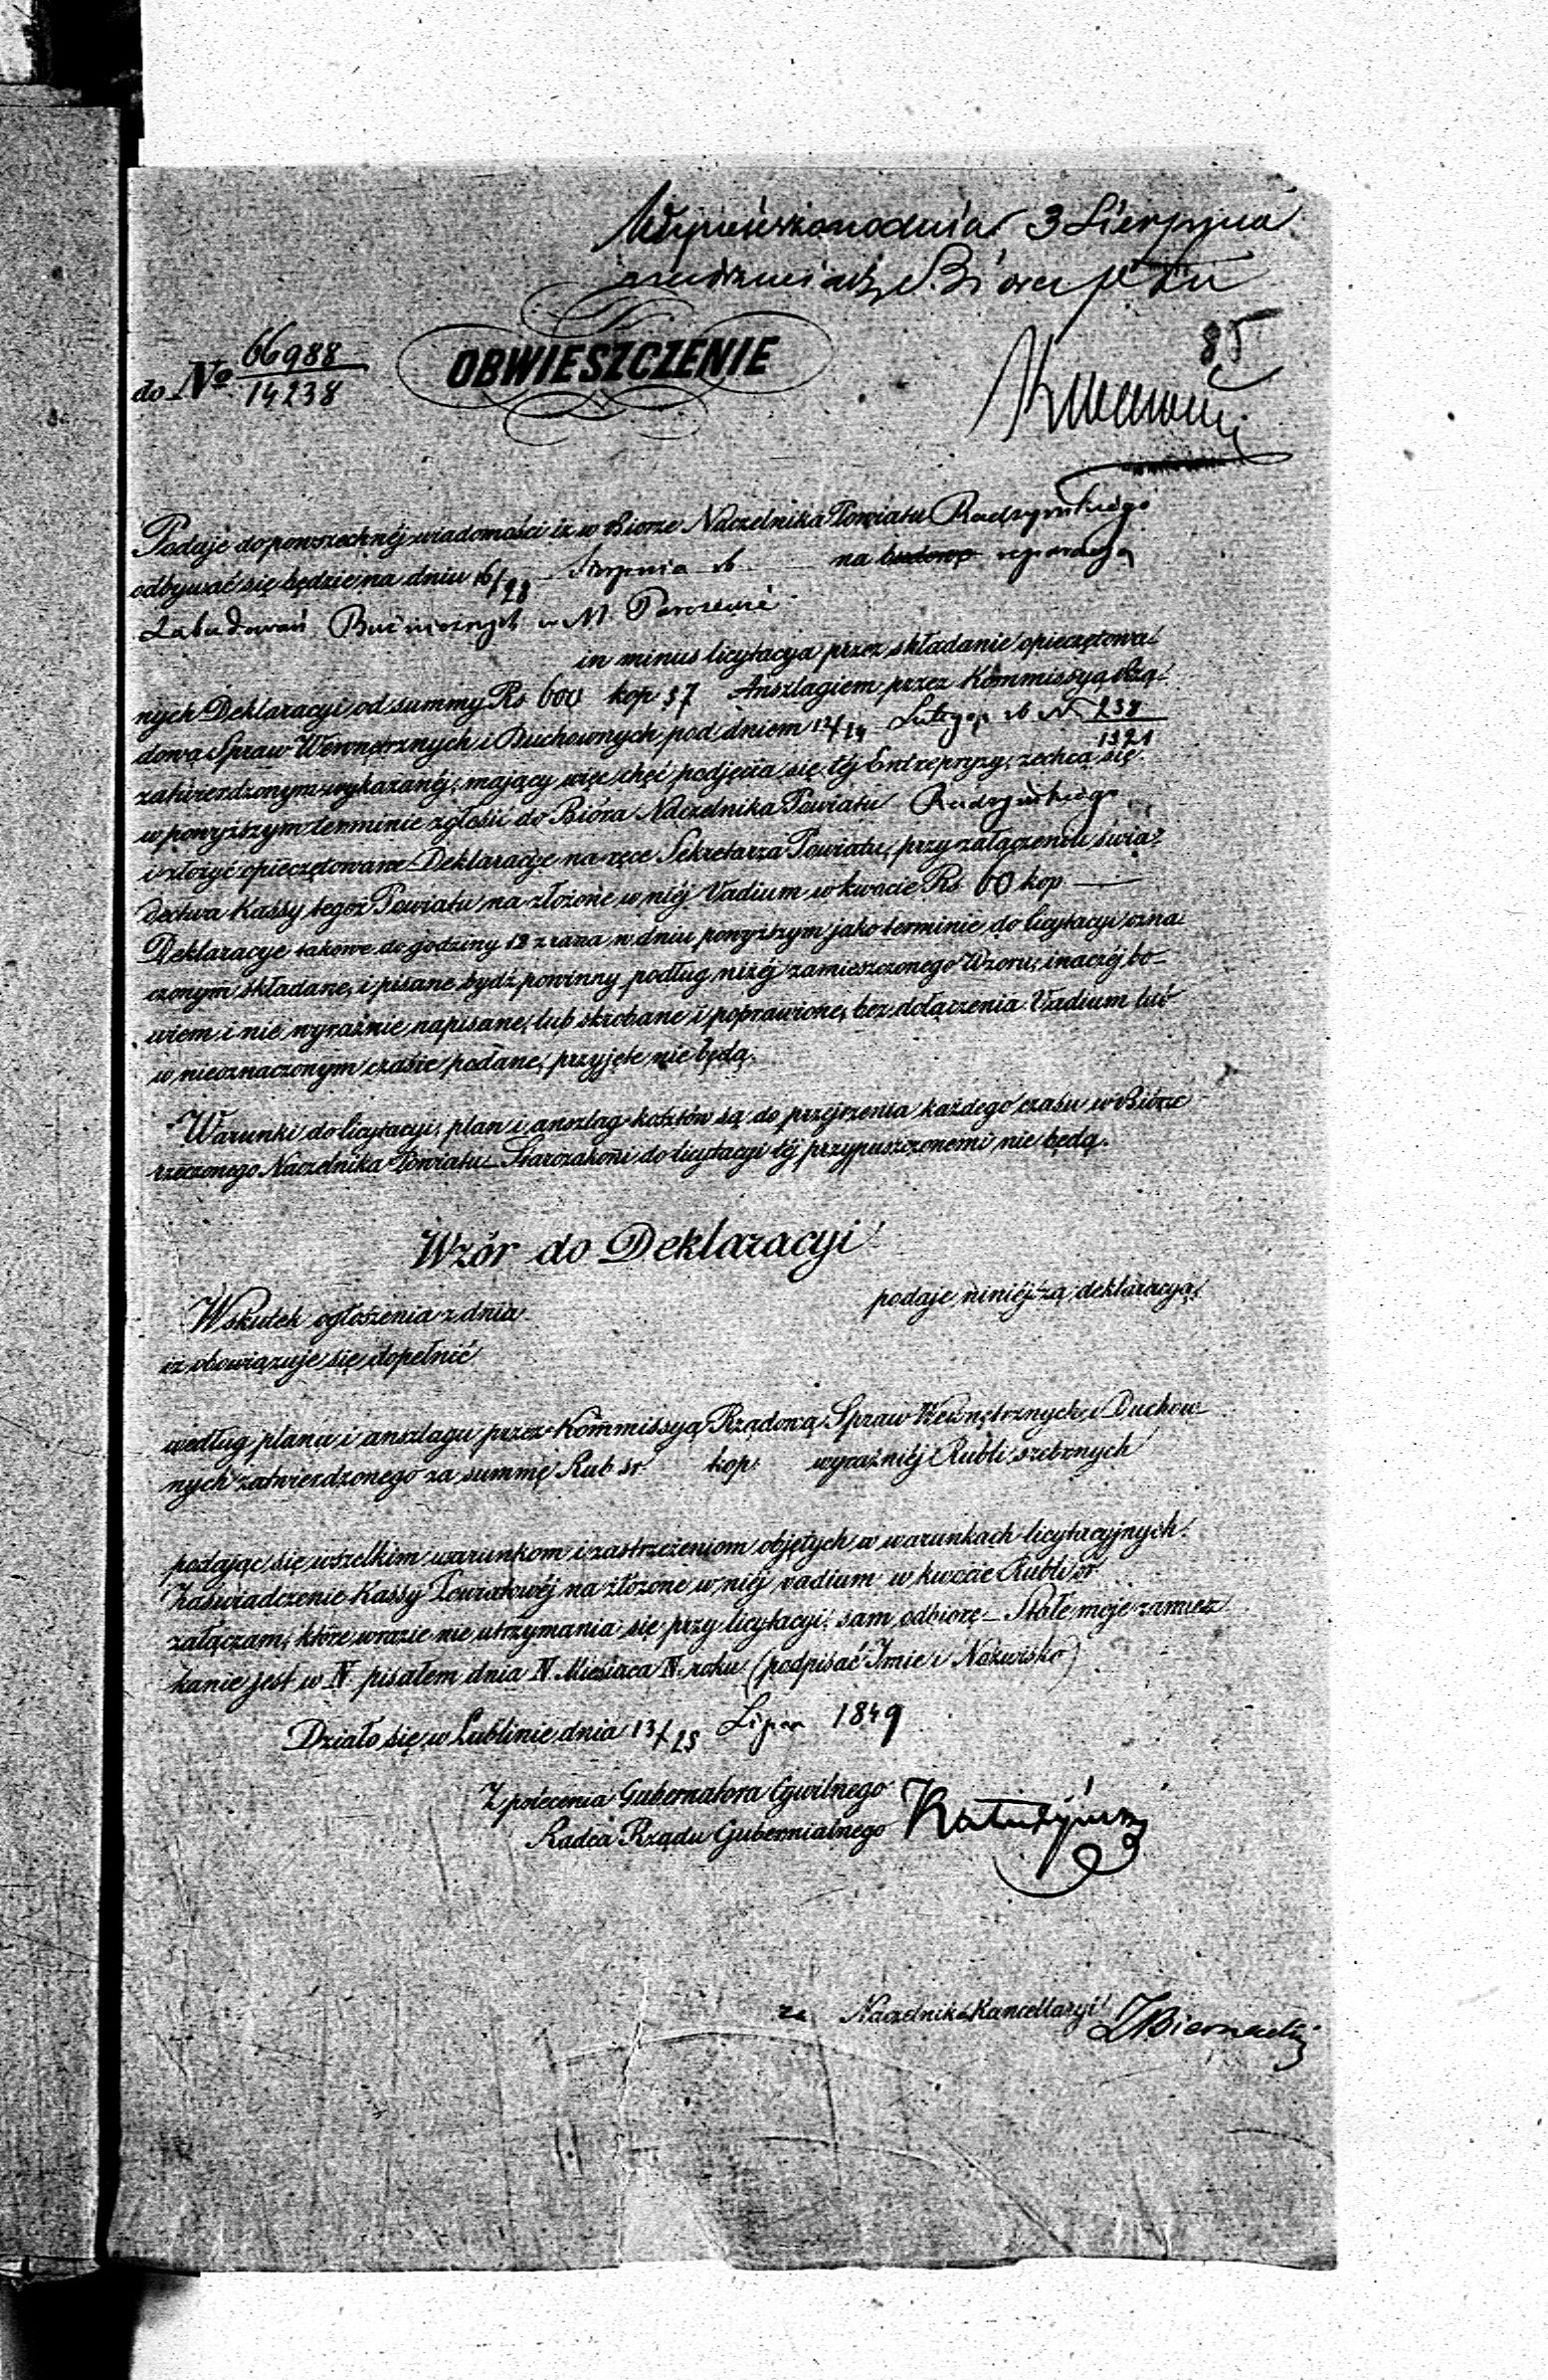 3 Sierpnia
85
do No 66988
14238
OBWIESZCZENIE
Podaje do powszechnéj wiadomości iż w Biorze Naczelnika Powiatu Radzyńskiego
odbywać się będzie na dniu 16/28 Sierpnia rb na budowę reperacyą
Zabudowań Bóżniczych w M. Parczewie
in minus licytacya przez składanie opieczętowa-
nych Deklaracyi od summy Rs 600 kop 37 Anszlagiem przez Kommissyą Rzą-
dową Spraw Wewnętrznych i Duchownych pod dniem 12/24 Lutego rb N 238
1321
zatwierdzonym wykazanéj; mający więc chęć podjęcia się téj Entrepryzy, zechcą się
w powyższym terminie zgłosić do Bióra Naczelnika Powiatu Radzyńskiego
i złożyć opieczętowane Deklaracije na ręce Sekretarza Powiatu, przy załączeniu świa-
dectwa Kassy tegoż Powiatu na złożone w niéj Vadium w kwocie Rs 60 kop —
Deklaracye takowe do godziny 12 z rana w dniu powyższym jako terminie do licytacyi ozna
czonym składane, i pisane bydź powinny podług niżéj zamieszczonego Wzoru; inaczéj bo-
wiem i nie wyraźnie napisane, lub skrobane i poprawione, bez dołączenia Vadium lub
w nieoznaczonym czasie podane, przyjęte nie będą.
Warunki do licytacyi, plan i anszlag kosztów są do przejrzenia każdego czasu w Biórze
rzeczonego Naczelnika Powiatu — Starozakoni do licytacyi téj przypuszczonemi nie będą.
Wzór do Deklaracyi
Wskutek ogłoszenia z dnia podaje niniéjszą deklaracyą,
iż obowiązuje się dopełnić
według planu i anszlagu przez Kommissyą Rządową Spraw Wewnętrznych i Duchow-
nych zatwierdzonego za summę Rub sr kop: wyraźniéj Rubli srebrnych
poddając się wszelkim warunkom i zastrzeżeniom objętych w warunkach licytacyjnych.
Zaświadczenie Kassy Powiatowéj na złożone w niéj vadium w kwocie Rubli sr
załączam, które w razie nie utrzymania się przy licytacyi, sam odbiorę — Stałe moje zamiesz
kanie jest w N. pisałem dnia N. Miesiąca N. roku (podpisać Imie i Nazwisko)
Działo się w Lublinie dnia 13/25 Lipca 1849
Z polecenia Gubernatora Cywilnego
Radca Rządu Gubernialnego
za Naczelnik Kancellaryi